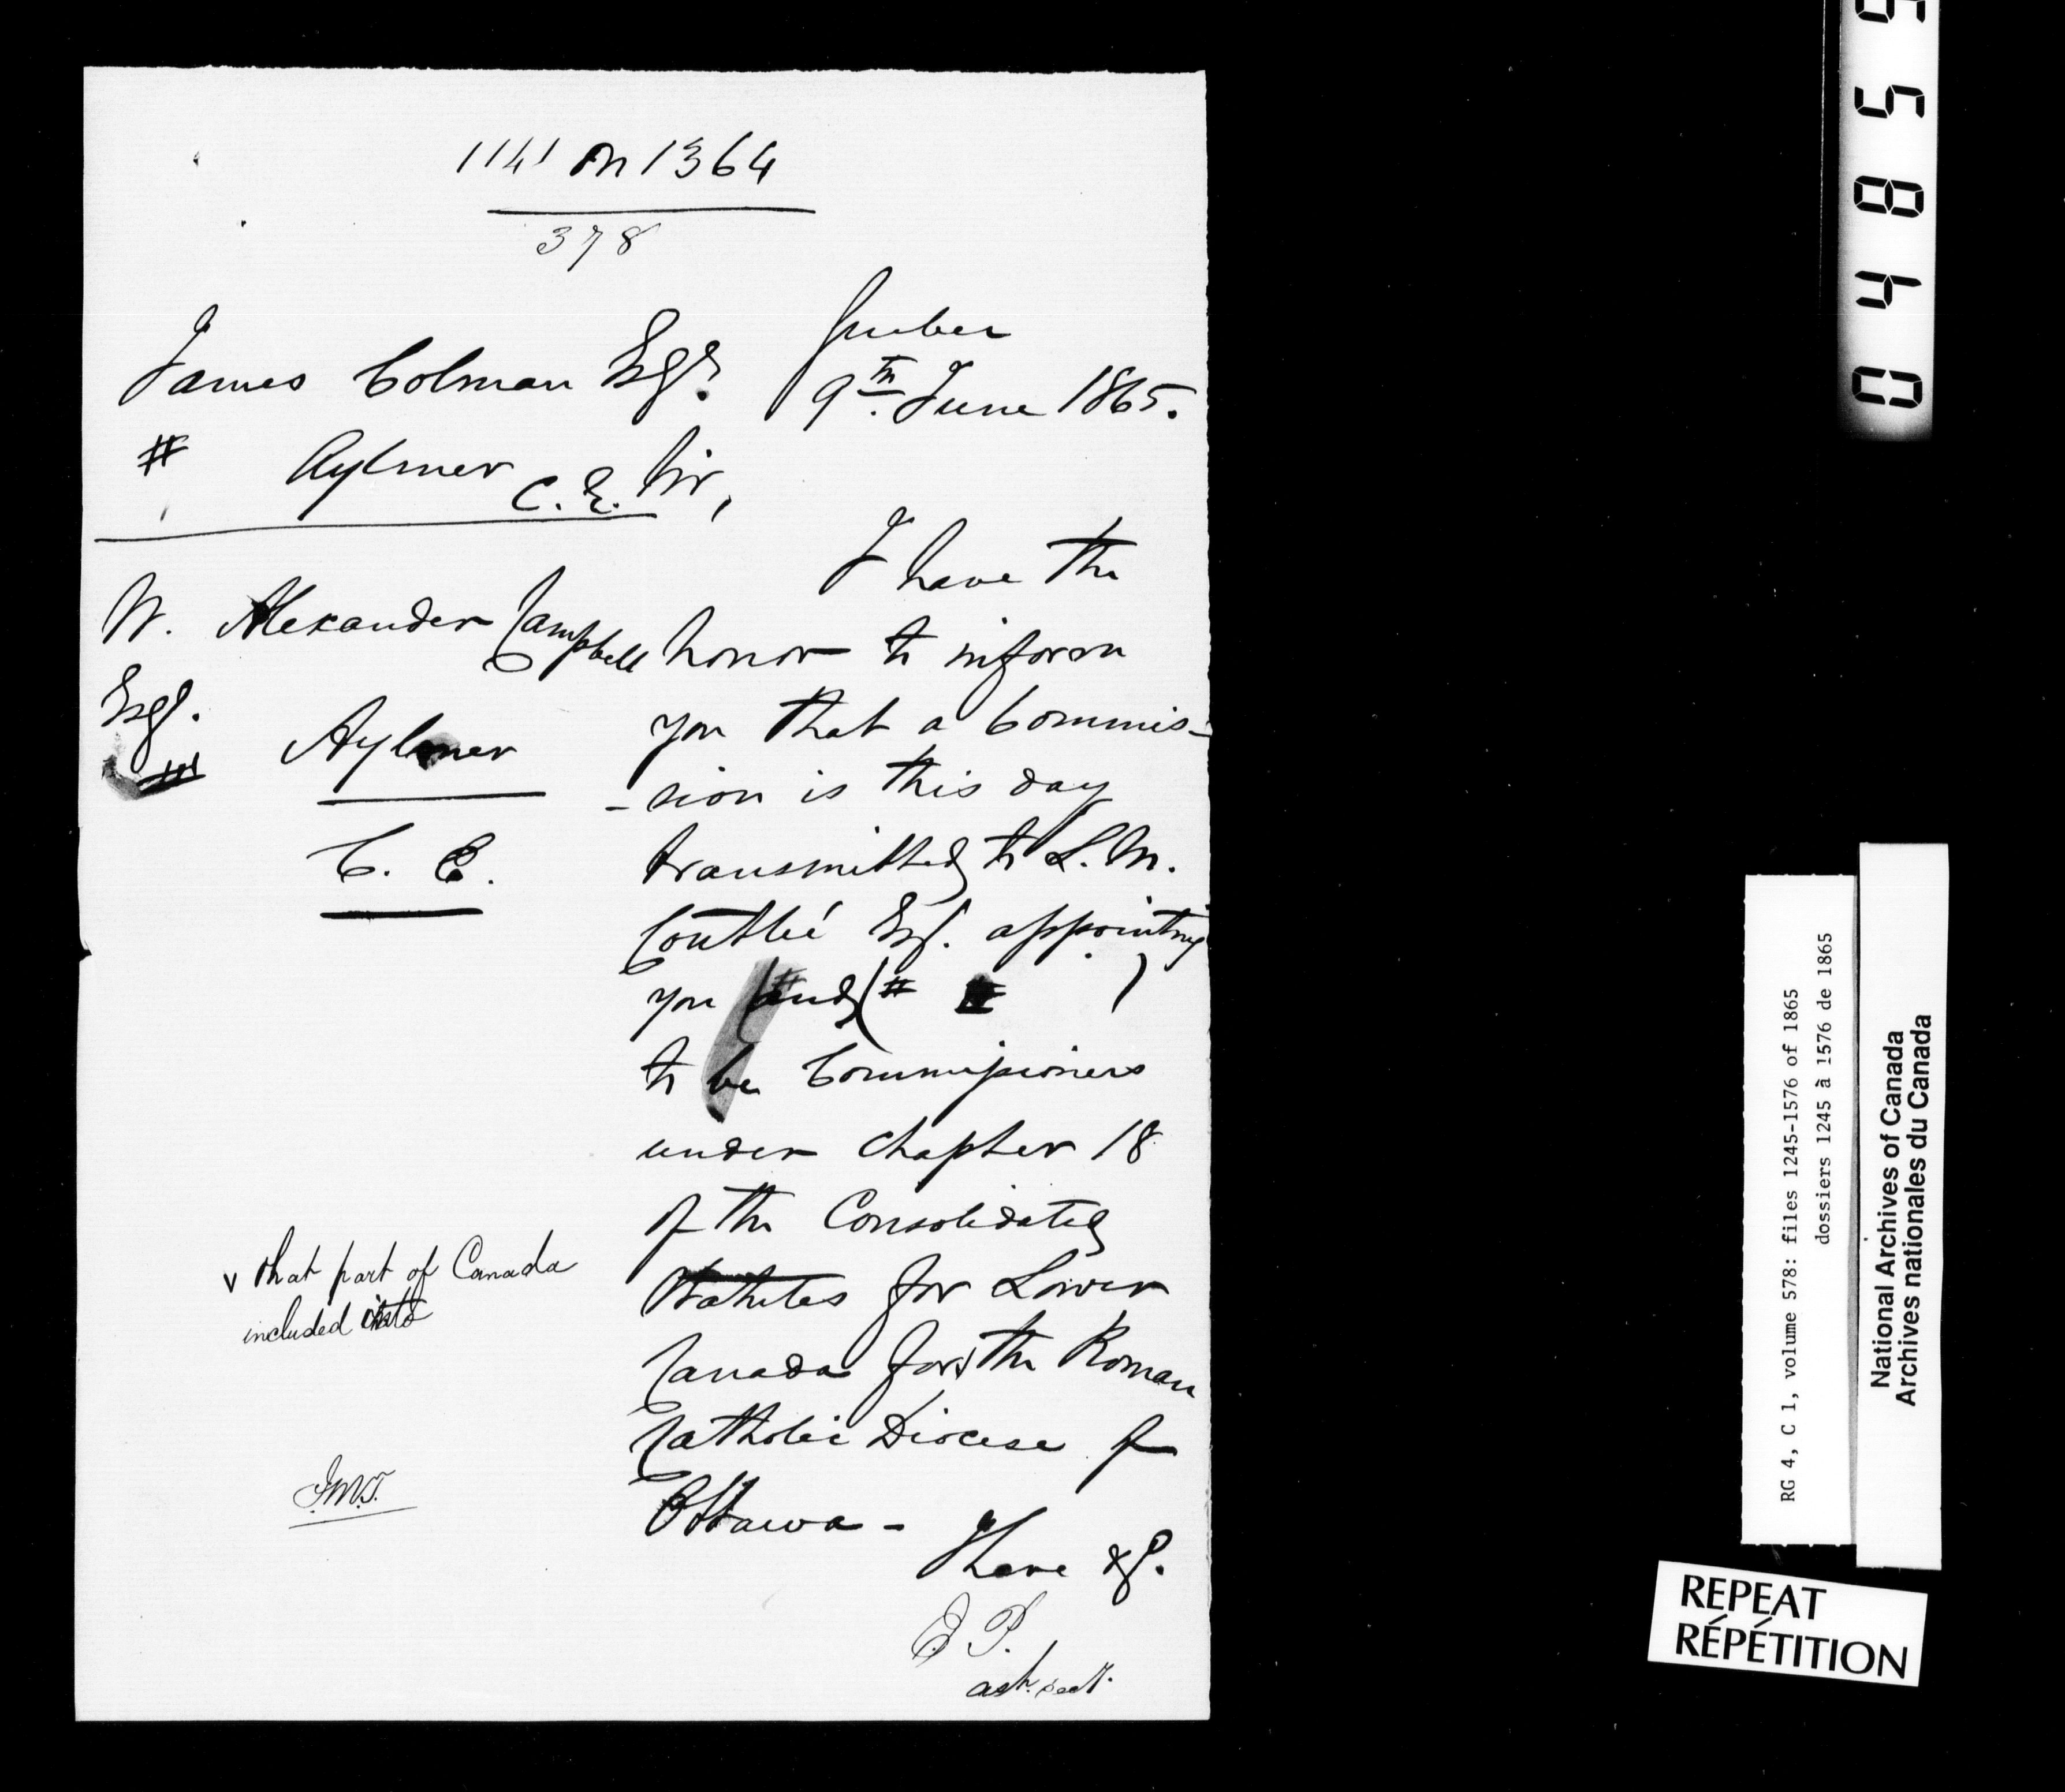 1141 on 1364
378
Quebec
9th June 1865.
James Colman Esqr.
# Aylmer C.E.
Sir,
W. Alexander Campbell
Esqr.
Aylmer
C. E.
I have the
honor to inform
you that a Commis-
-sion is this day
transmitted to L. M.
Coutlée Esqr. appointing
you (and (# )
to be Commissioners
under chapter 18
of the Consolidated
Statutes for Lower
Canada for v the Roman
Catholic Diocese of
Ottawa -
v that part of Canada
included into
I have &c.
E P.
Asst. Secy.
RG 4, C 1, volume 578: files 1245-1576 of 1865
dossiers 1245 à 1576 de 1865
National Archives of Canada
Archives nationales du Canada
REPEAT
RÉPÉTITION
0 4 8 5 9